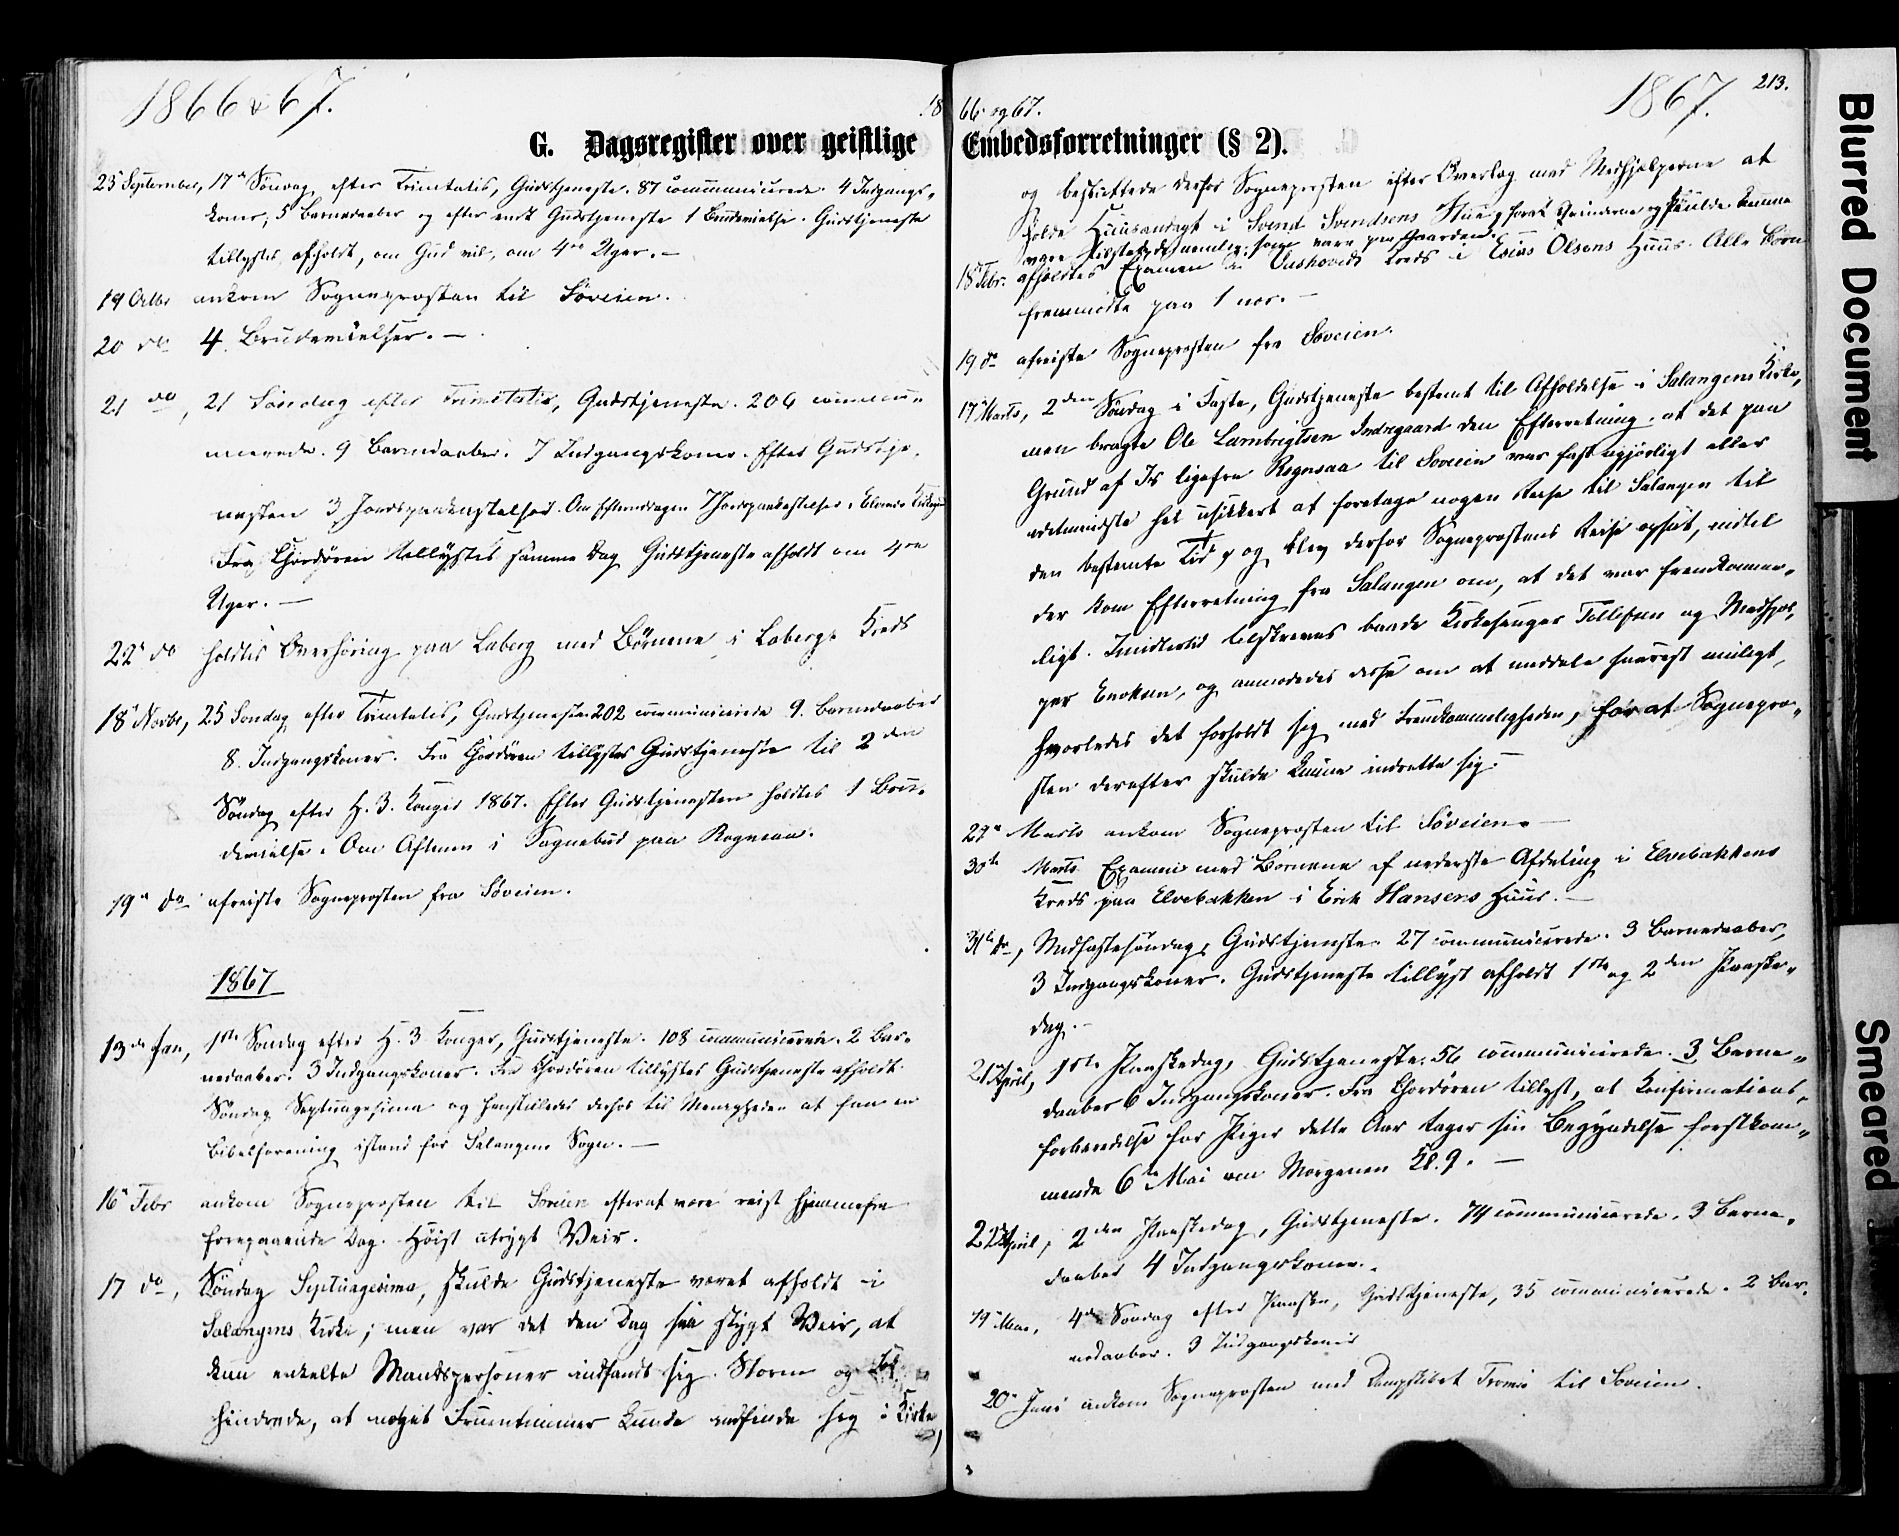 1866 & 67.
18 66 og 67.
1867.
213.
G. Dagsregister over geistlige Embedsforretninger (§ 2).
23 September, 17de Søndag efter Trinitatis, Gudstjeneste. 87 communicerede. 4 Indgangs-
koner, 5 Barnedaaber og efter endt Gudstjeneste 1 Brudevielse. Gudstjeneste
tillystes afholdt, om Gud vil, om 4re Uger. –
19 Octbr ankom Sogneprosten til Søveien.
20 do 4 Brudevielser. –
21 do, 21 Søndag efter Trinitatis, Gudstjeneste. 206 commu-
nicerede. 9 Barnedaaber. 7 Indgangskoner. Efter Gudstje-
nesten 3 Jordspaakastelser. Om Eftermidagen 7 Jordspaakastelser i Elvenes
Fra Chordøren tillystes samme Dag Gudstjeneste afholdt om 4re
Uger. –
22de do holdtes Overhøring paa Laberg med Børnene i Labergs Kreds
18de Novbr, 25 Søndag efter Trinitatis, Gudstjeneste 202 communicerede 9. Barnedaaber
8. Indgangskoner. Fra Chordøren tillystes Gudstjeneste til 2den
Søndag efter H. 3. Konger 1867. Efter Gudstjenesten holdtes 1 Bru-
devielse. Om Aftenen i Sognebud paa Rognsaa.
19de do afreiste Sogneprosten fra Søveien.
1867
13de Jan, 1ste Søndag efter H. 3 Konger, Gudstjeneste. 108 communicerede. 2 Bar-
nedaaber. 3 Indgangskoner. Fra Chordøren tillystes Gudstjeneste afholdt
Søndag Septuagesima og henstilledes derhos til Menigheden at faa en
Bibelforening istand for Salangens Sogn. –
16de Febr ankom Sogneprosten til Søveien efterat være reist hjemmefra
foregaaende Dag. Høist utrygt Veir.
17 do, Søndag Septuagesima, skulde Gudstjeneste været afholdt i
Salangens Kirke; men var det den Dag saa stygt Veir, at
kun enkelte Mandspersoner indfandt sig. Storm og
hindrede, at noget Fruentimmer kunde indfinde sig i Kirke,
og besluttede derfor Sogneprosten efter Overlæg med Medhjælperne at
holde Huusandagt i Svend Svendsens Stue, hvor Qvinderne og kunne
være tilstede, nemlig som vare paa Gaarden.
18 Febr. afholdtes Examen i Kreds i Esias Olsens Huus. Alle Børn
fremmødte paa 1 nær. –
19 do afreiste Sogneprosten fra Søveien.
17 Marts, 2den Søndag i Faste, Gudstjeneste bestemt til Afholdelse i Salangens Kirke,
men bragte Ole Lambrigtsen Indregaard den Efterretning, at det paa
Grund af Is ligefra Rognsaa til Søveien var fast ugjørligt eller
idetmindste høi usikkert at foretage nogen Reise til Salangen til
den bestemte Tid, og blev derfor Sogneprostens Reise opsat, indtil
der kom Efterretning fra Salangen om, at det var fremkomme-
ligt. Imidlertid tilskreves baade Kirkesanger Tollefsen og Medhjæl-
per Enoksen, og anmodedes disse om at meddele snarest muligt,
hvorledes det forholdt sig med Fremkommeligheden, for at Sognepro-
sten derefter skulde kunne indrette sig. –
29de Marts ankom Sogneprosten til Søveien. –
30te Marts Examen med Børnene af nederste Afdeling i Elvebakkens
Kreds paa Elvebakken i Erik Hansens Huus. –
31te do, Midfastesøndag, Gudstjeneste. 27 communicerede. 3 Barnedaaber,
3 Indgangskoner. Gudstjeneste tillyst afholdt 1ste og 2den Paaske-
dag. –
21 April, 1ste Paaskedag, Gudstjeneste. 56 communicerede. 3 Barne-
daaber 6 Indgangskoner. Fra Chordøren tillyst, at Konfirmations-
forberedelse for Piger dette Aar tager sin Begyndelse førstkom-
mende 6te Mai om Morgenen Kl. 9. –
22 April, 2den Paaskedag, Gudstjeneste. 74 communicerede. 3 Barne-
daaber 4 Indgangskoner. –
19 Mai, 4de Søndag efter Paaske, Gudstjeneste, 35 communicerede. 2 Bar-
nedaaber. 3 Indgangskoner
20de Juni ankom Sogneprosten med Dampskibet Tromsø til Søveien.
Blurred Document
Smeared